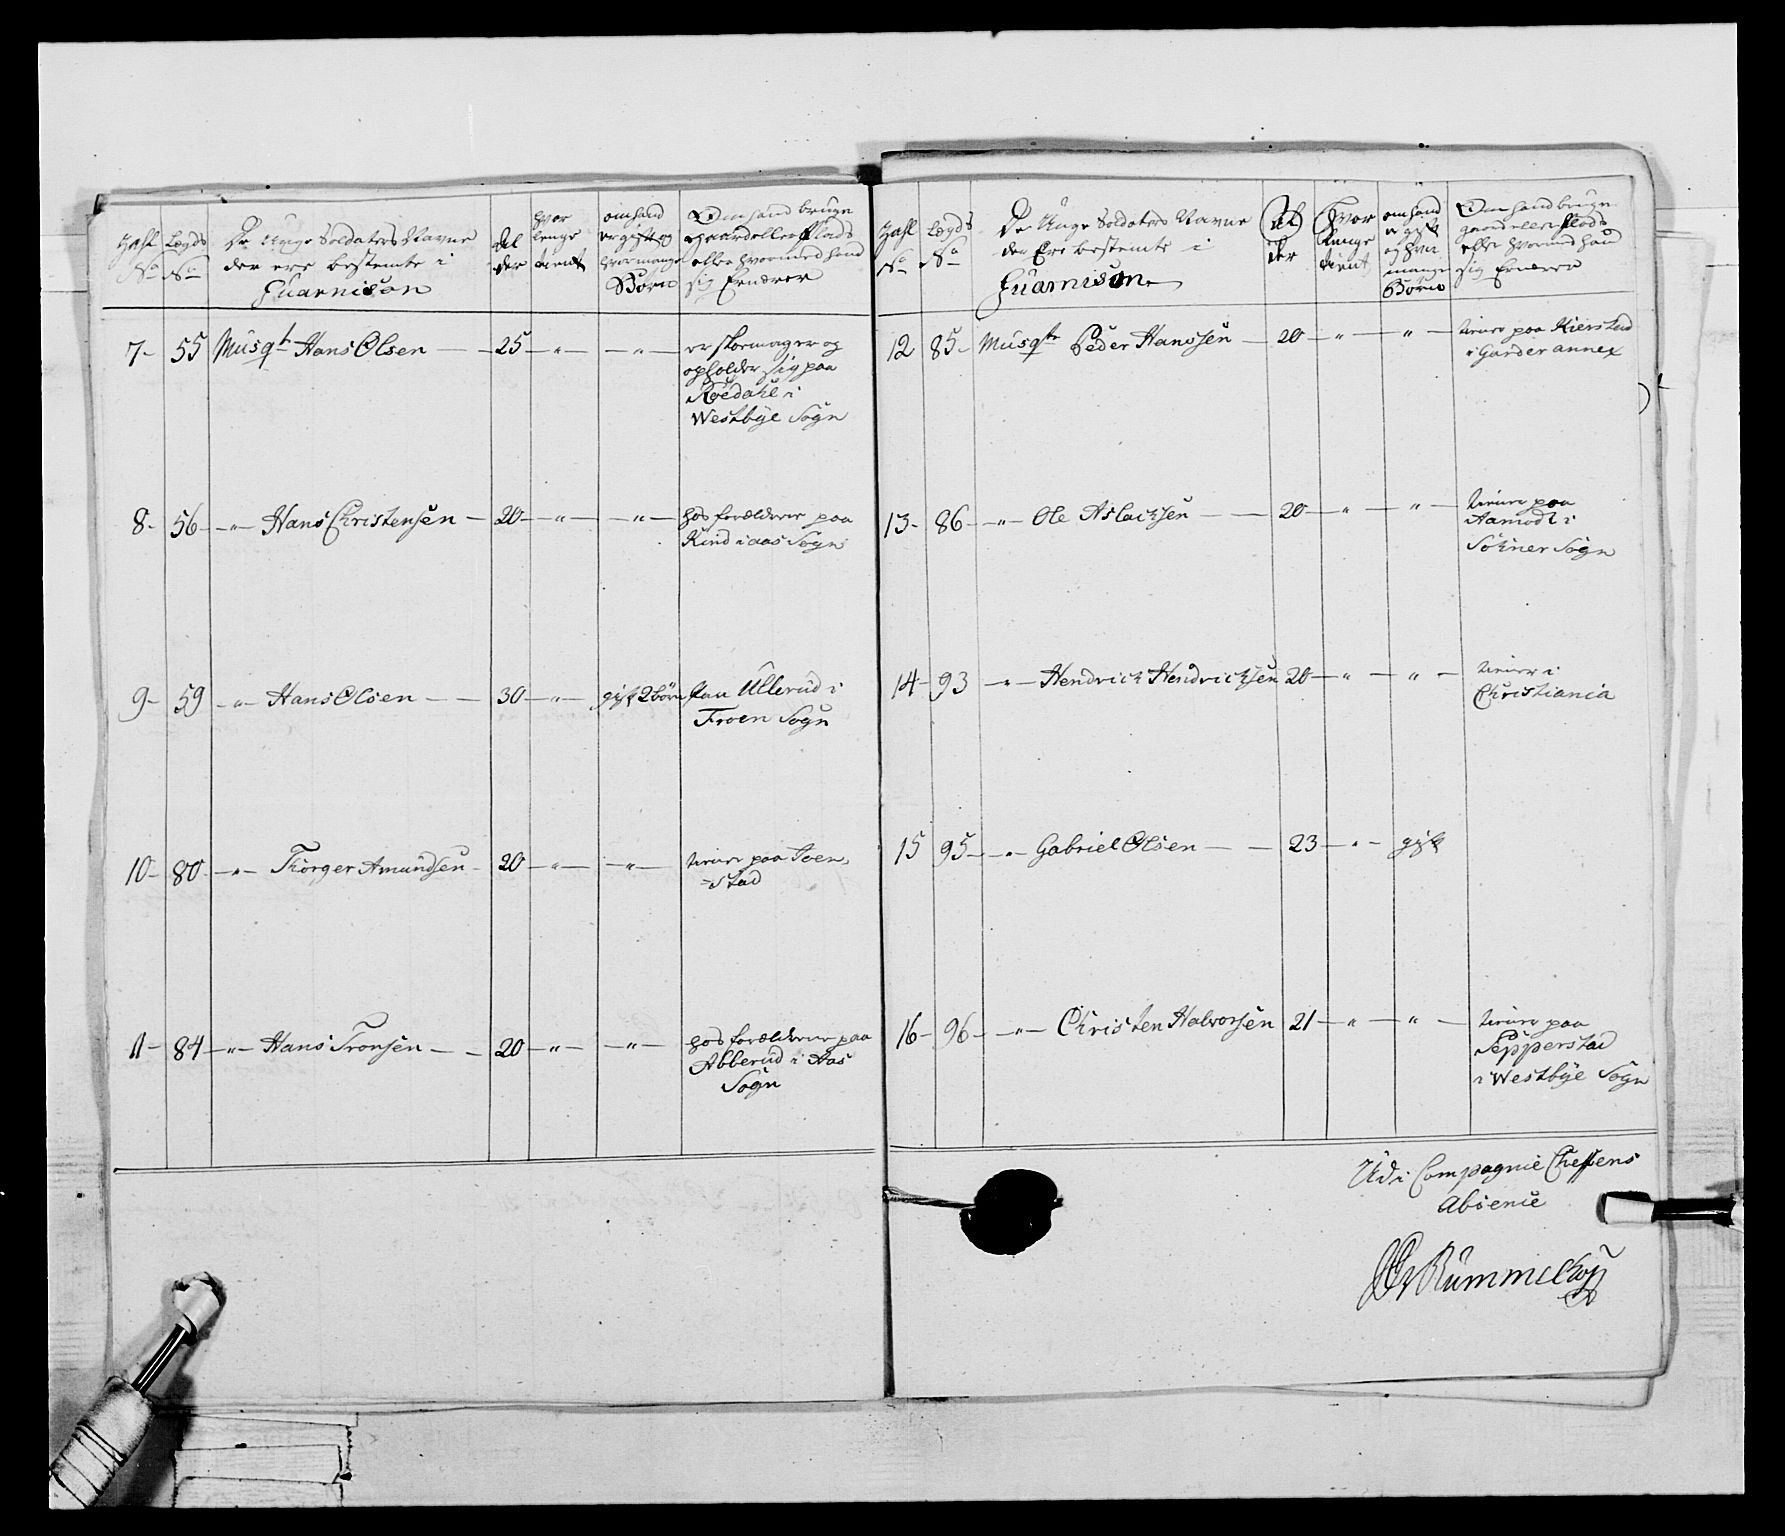 Zahl No
Legds No
De Unge Soldaters Navne
der ere bestemte i
Guarnison
Al
der
hvor
lenge
tient
om hand
er gift og
hvor mange
Børn
Om hand bruger
gaard eller Plads
eller hvormed hand
sig Ernærer
7 - 55 Musqt Hans Olsen - 25 - " - - " - er skomager og
opholder sig paa
Roedahl i
Westbye Sogn
8 - 56 - " - Hans Christensen - 20 - " - - " - hos forældrene paa
Kind i aas Sogn
9 - 59 - " - Hans Olsen - - 30 - " - gift 2 børn paa Ullerud i
Froen Sogn
10 - 80 - " - Torger Amundsen - 20 - " - - " - tiener paa Toen
=stad
11 - 84 - " - Hans Tronsen - - 20 - " - - " - hos forældrene paa
Abberud i Aas
Sogn
Zahl No
Legds No
De Unge Soldaters Navne
der Ere bestemte i
Guarnison
Al
der
Hvor
lenge
tient
om hand
er gift
og hvor
mange
Børn
Om hand bruger
gaard eller Plads
eller hvormed hand
sig Ernærer
12 85 - Musqt Peder Hanssen - 20 - " - " - tiener paa Kierstad
i Garder annex
13 - 86 - " - Ole Aslachsen - - 20 - " - " - tiener paa
Aamodt i
Sohner Sogn
14 - 93 - " - Hendrich Hendrichsen 20 - " - " - tiener i
Christiania
15 95 - " - Gabriel Olsen - - 23 - " - gift
16 - 96 - " - Christen Halvorsen 21 - " - " - tiener paa
Sepperstad
i Westbye Sogn
Udi Compagnie Cheffens
Absence
Rummelhof